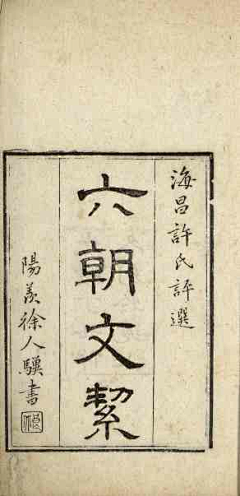 海昌許氏評選
六朝文絜
陽羨徐人驥書